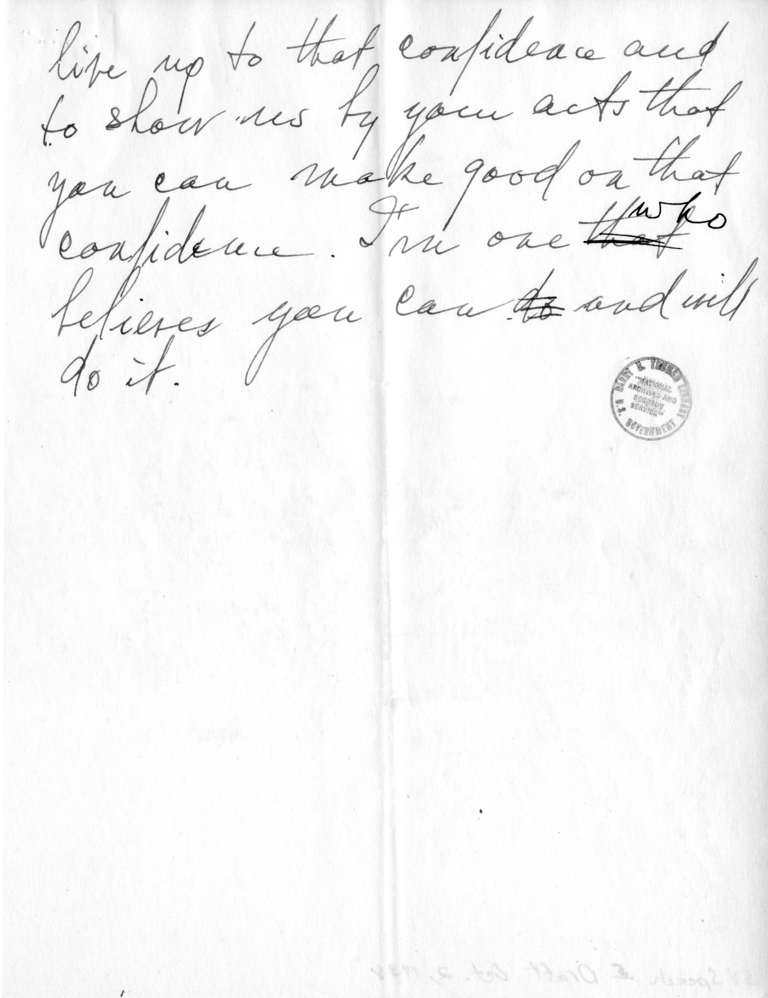 live up to that confidence and
to show us by your acts that
you can make good on that
confidence. I'm one that who
believes you can do and will
do it.
HARRY S. TRUMAN LIBRARY
"NATIONAL
ARCHIVES AND
RECORDS
SERVICE"
U.S. GOVERNMENT
Speech Draft Oct. 2, 19